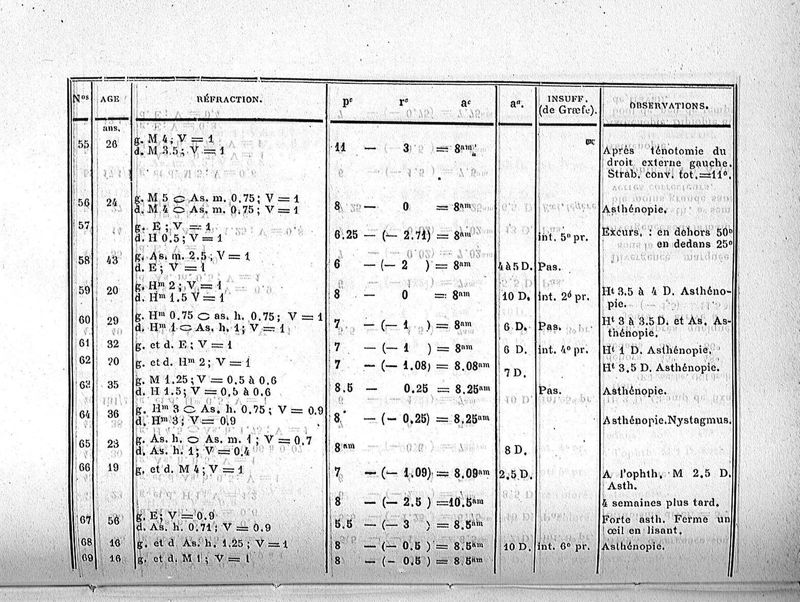 Nos AGE RÉFRACTION. pc rc ac aa. INSUFF. (de Græfe). OBSERVATIONS.
ans.
55 26 g. M 4; V = 1
d. M 3.5; V = 1 11 — 3 = 8am Après ténotomie du
droit externe gauche.
Strab. conv. tot. = 11°.
56 24 g. M 5 ⊂⊃ As. m. 0.75; V = 1
d. M 4 ⊂⊃ As. m. 0.75; V = 1 8 — 0 = 8am Asthénopie.
57 g. E; V = 1
d. H 0.5; V = 1 6.25 — (— 2.71) = 8am int. 5o pr. Excurs. : en dehors 50o
en dedans 25o
58 43 g. As. m. 2.5; V = 1
d. E; V = 1 6 — (— 2 ) = 8am 4 à 5 D. Pas.
59 20 g. Hm 2; V = 1
d. Hm 1.5 V = 1 8 — 0 = 8am 10 D. int. 2o pr. Ht 3.5 à 4 D. Asthéno-
pie.
60 29 g. Hm 0.75 ⊂⊃ as. h. 0.75; V = 1
d. Hm 1 ⊂⊃ As. h. 1; V = 1 7 — (— 1 ) = 8am 6 D. Pas. Ht 3 à 3.5 D. et As. As-
thénopie.
61 32 g. et d. E; V = 1 7 — (— 1 ) = 8am 6 D. int. 4o pr. Ht 1 D. Asthénopie.
62 20 g. et d. Hm 2; V = 1 7 — (— 1.08) = 8.08am 7 D. Ht 3,5 D. Asthénopie.
63 35 g. M 1.25; V = 0,5 à 0.6
d. H 1.5; V = 0,5 à 0.6 8.5 — 0.25 = 8.25am Pas. Asthénopie.
64 36 g. Hm 3 ⊂⊃ As. h. 0.75; V = 0.9
d. Hm 3; V = 0.9 8 — (— 0,25) = 8,25am Asthénopie. Nystagmus.
65 23 g. As. h. ⊂⊃ As. m. 1; V = 0,7
d. As. h. 1; V = 0.4 8am 8 D.
66 19 g. et d. M 4; V = 1 7 — (— 1.09) = 8,09am 2,5 D. A l'ophth. M 2.5 D.
Asth.
8 — (— 2.5 ) = 10.5am 4 semaines plus tard.
67 56 g. E; V = 0.9
d. As. h. 0.71; V = 0.9 5.5 — (— 3 ) = 8.5am Forte asth. Ferme un
œil en lisant.
68 16 g. et d As. h. 1.25; V = 1 8 — (— 0.5 ) = 8.5am 10 D. int. 6o pr. Asthénopie.
69 16 g. et d. M 1; V = 1 8 — (— 0.5 ) = 8.5am